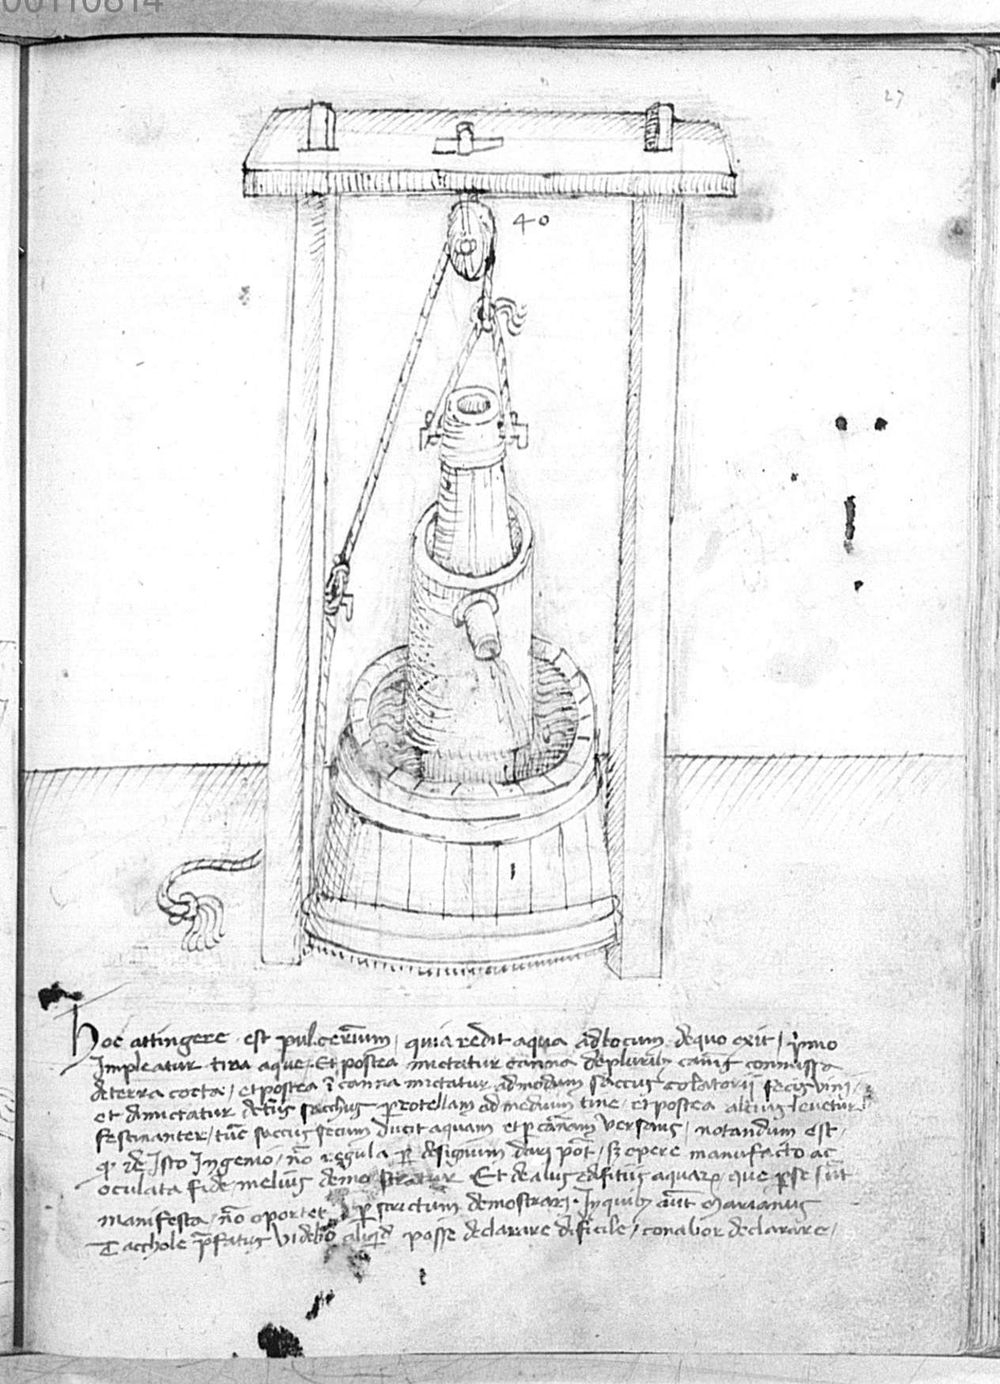 00110814
27
40
Hoc attingere est pulcerimum, quia redit aqua ad locum dequo exit, primo
Impleatur tina aque, Et postea mictatur canna de pluribus cannis commissa
de terra cocta, et postea i canna mictatur admodum saccus colatorii fecis vini,
et dimictatur dictus sacchus protellam ad medium tine, et postea altius levetur
festinanter, tunc saccus secum ducit aquam et per cannam versans, notandum est,
q de Isto Ingenio, no regula p designum dari pot, sz opere manufacto ac
oculata fide melius demostratur Et de aliis edifitiis aquarum que per se sunt
manifesta, no oportet p scrictum demostrari. In quibus aut Marianus
Tacchole prefatus videbo aliquid posse declarare dificile, conabor declarare,